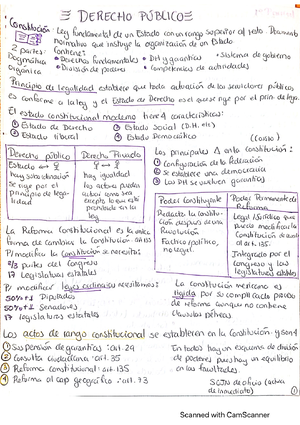 DERECHO PÚBLICO
Constitución: Ley fundamental de un Estado con un rango superior al resto. Documento
normativo que instituye la organización de un Estado
2 partes: Contiene:
Dogmática • Derechos fundamentales • DH y garantías • Sistema de gobierno
Orgánica • División de poderes • Competencias de autoridades
Principio de legalidad establece que toda actuación de los servidores públicos
es conforme a la ley y el Estado de Derecho es el que se rige por el prin. de leg.
El estado constitucional moderno tiene 4 características:
① Estado de Derecho ③ Estado Social (D.H. etc)
② Estado liberal ④ Estado Democrático
(CDXXX)
Derecho público
Estado
hay subordinación
Se rige por el
principio de lega-
lidad
Derecho Privado
hay igualdad
los actores pueden
actuar como sea
excepto lo que esté
prohibido en la
ley
Las principales Δ en la constitución:
① Configuración de la Federación
② Se establece una democracia
③ Los DH se vuelven garantías
Poder Constituyente
Redacta la Constitu-
ción después de una
Revolución
Fáctico/político,
no legal.
Poder Permanente de
Reforma
Legal/Jurídico que
puede modificar la
Constitución de acuerdo
al art. 135.
Integrado por el
congreso y las
legislaturas estatales
La Reforma Constitucional es la única
forma de cambiar la Constitución art 135
P/modificar la constitución se necesita:
2/3 partes del congreso
17 Legislaturas estatales
P/ modificar leyes ordinarias necesitamos:
50%+1 Diputados
50%+1 Senadores
17 legislaturas estatales
La constitución mexicana es
rígida por su complicado proceso
de reforma aunque no contiene
cláusulas pétreas
Los actos de rango constitucional se establecen en la Constitución y son 4
① Suspensión de garantías: art. 29
② Consulta ciudadana: art. 35
③ Reforma constitucional: art. 135
④ Reforma al cap geográfico: art. 73
En todos hay un esquema de división
de poderes pues hay un equilibrio
en las facultades.
SCJN de oficio (actúa
de inmediato)
①
Scanned with CamScanner